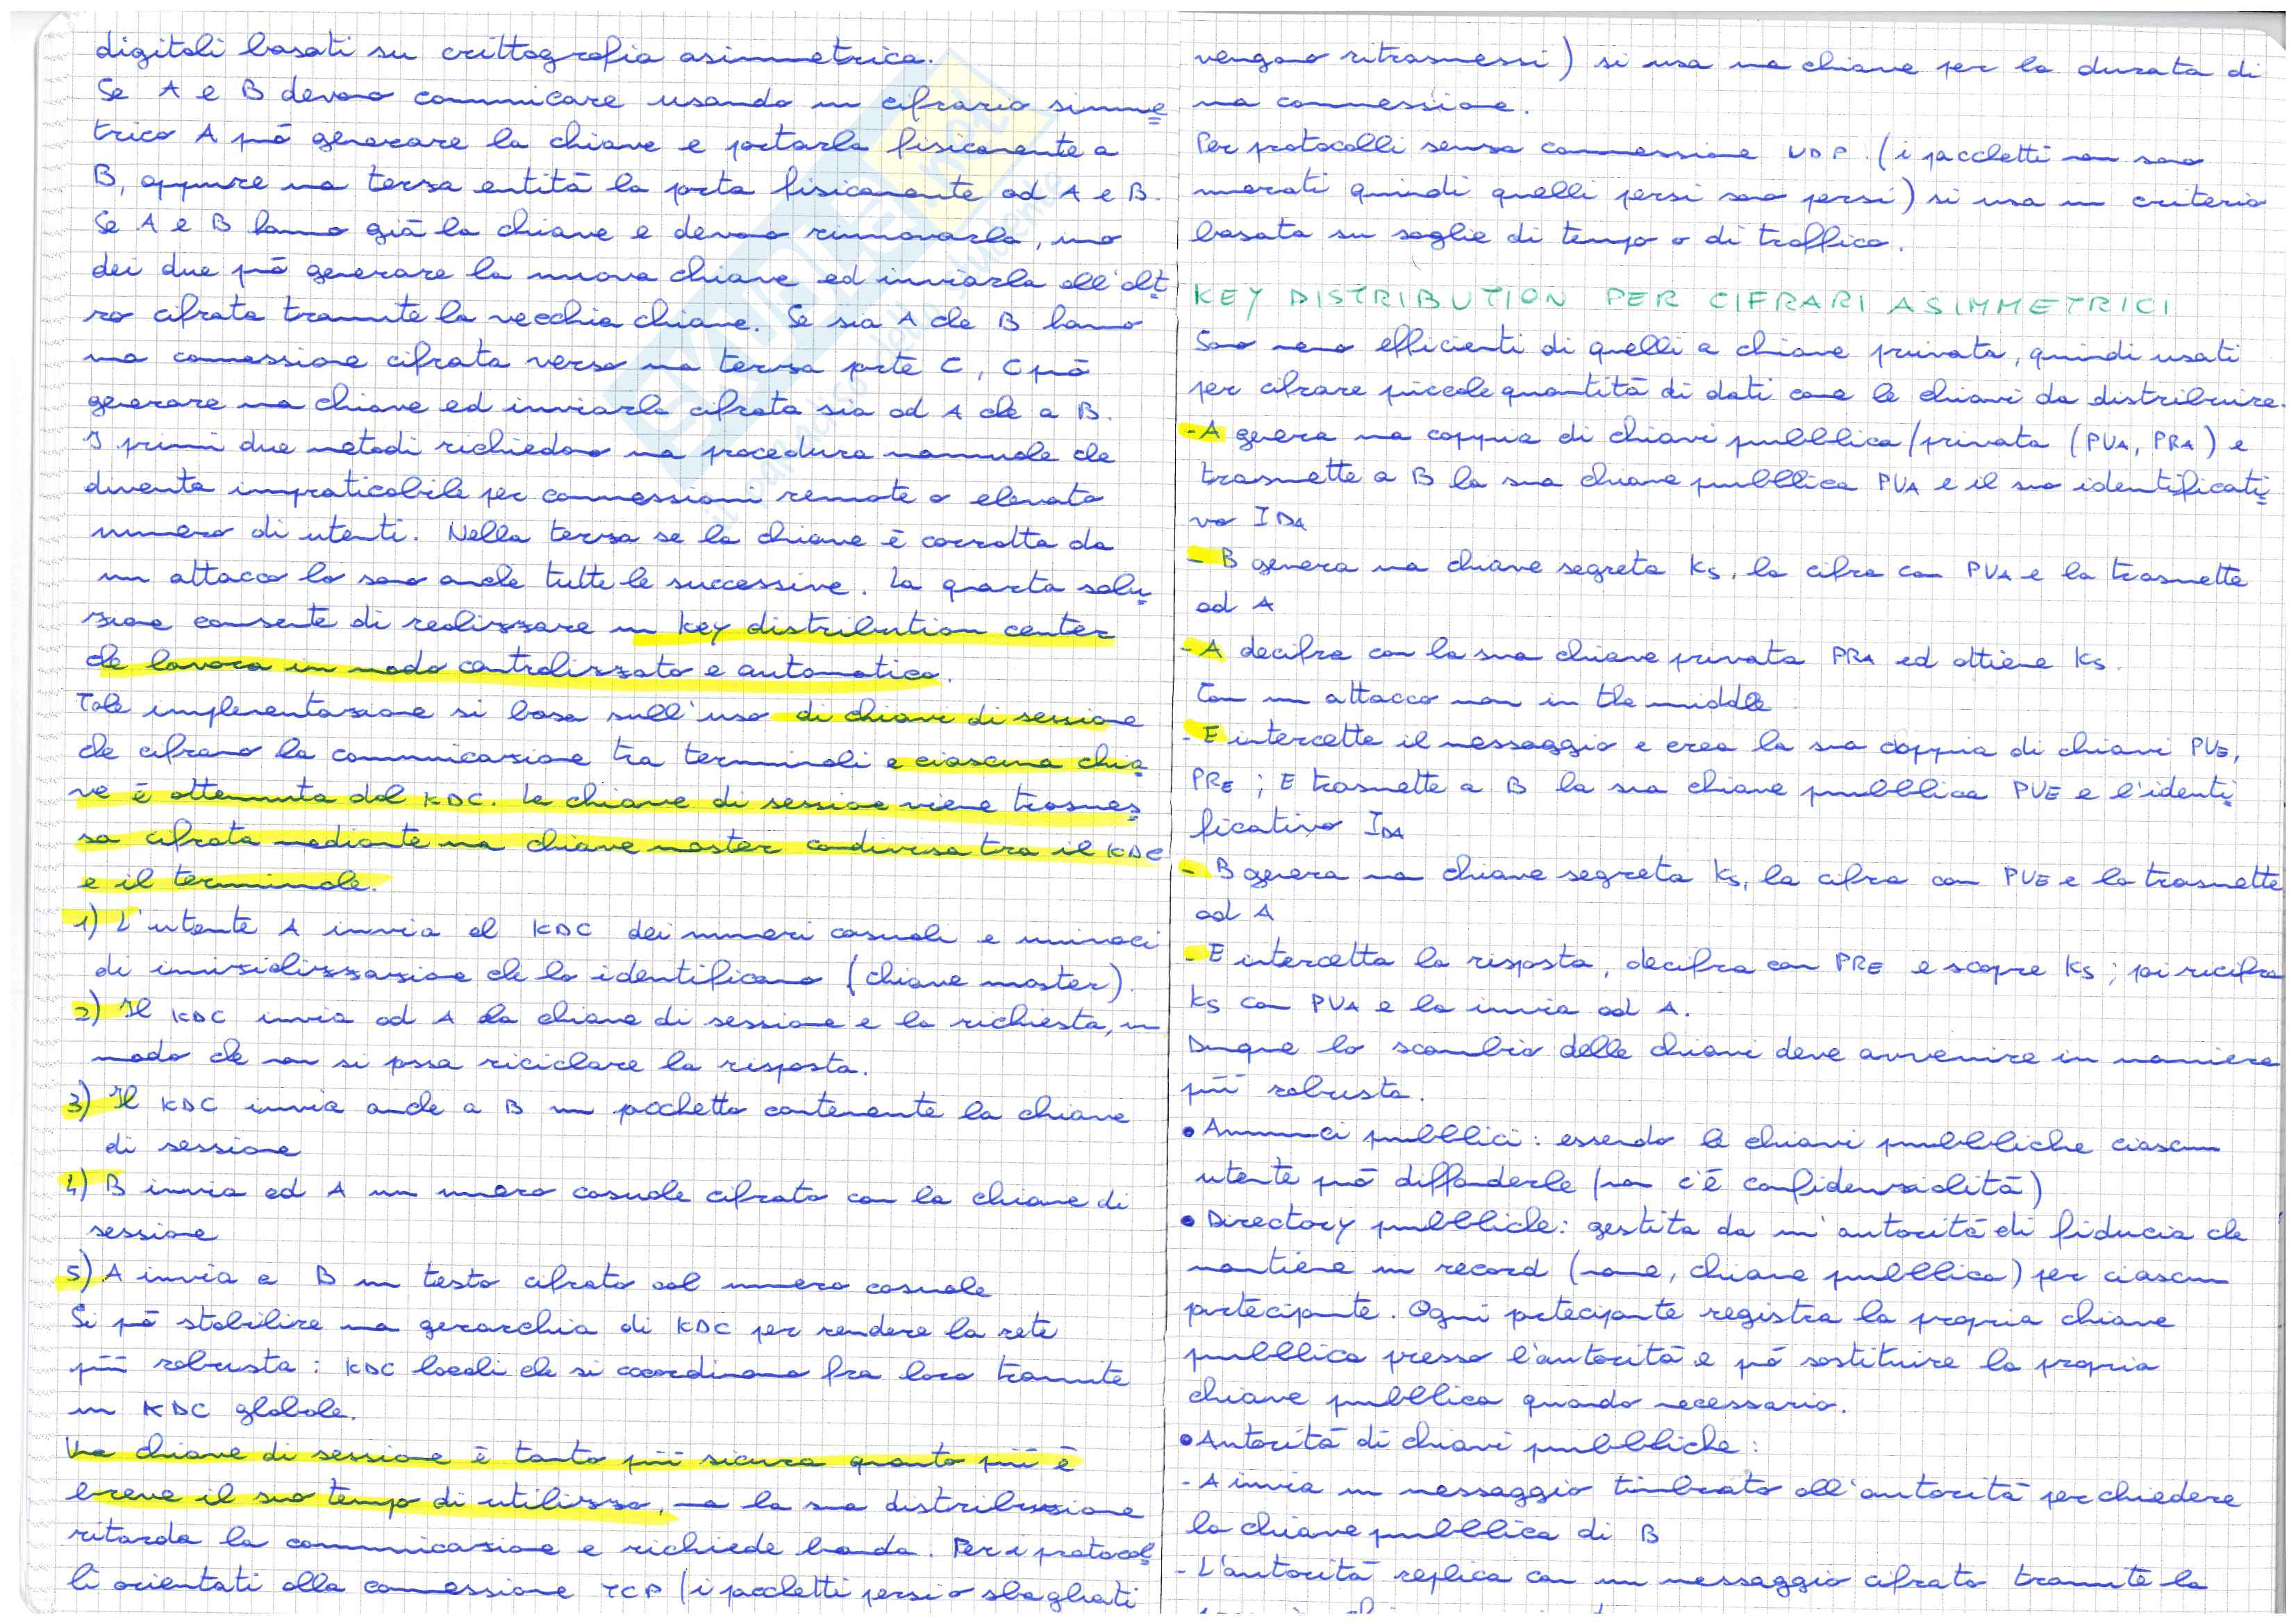 digitali basati su crittografia asimmetrica.
Se A e B devono comunicare usando un cifrario simme
trico A può generare la chiave e portarla fisicamente a
B, oppure una terza entità la porta fisicamente ad A e B.
Se A e B hanno già la chiave e devono rinnovarla, uno
dei due può generare la nuova chiave ed inviarla all'alt
ro cifrata tramite la vecchia chiave. Se sia A che B hanno
una connessione cifrata verso una terza parte C, C può
generare una chiave ed inviarla cifrata sia ad A che a B.
I primi due metodi richiedono una procedura manuale che
diventa impraticabile per connessioni remote o elevato
numero di utenti. Nella terza se la chiave è corrotta da
un attacco lo sono anche tutte le successive. La quarta solu
zione consente di realizzare un key distribution center
che lavora in modo centralizzato e automatico.
Tale implementazione si basa sull'uso di chiavi di sessione
che cifrano la comunicazione tra terminali e ciascuna chia
ve è ottenuta dal KDC. La chiave di sessione viene trasmes
sa cifrata mediante una chiave master condivisa tra il KDC
e il terminale.
1) L'utente A invia al KDC dei numeri casuali e univoci
di inizializzazione che lo identificano (chiave master).
2) Il KDC invia ad A la chiave di sessione e la richiesta, in
modo che non si possa riciclare la risposta.
3) Il KDC invia anche a B un pacchetto contenente la chiave
di sessione
4) B invia ad A un numero casuale cifrato con la chiave di
sessione
5) A invia a B un testo cifrato col numero casuale
Si può stabilire una gerarchia di KDC per rendere la rete
più robusta: KDC locali che si coordinano fra loro tramite
un KDC globale.
Una chiave di sessione è tanto più sicura quanto più è
breve il suo tempo di utilizzo, ma la sua distribuzione
ritarda la comunicazione e richiede banda. Per i protocol
li orientati alla connessione TCP (i pacchetti persi o sbagliati
vengono ritrasmessi) si usa una chiave per la durata di
una connessione.
Per protocolli senza connessione UDP. (i pacchetti non sono
merati quindi quelli persi sono persi) si usa un criterio
basato su soglie di tempo o di traffico.
KEY DISTRIBUTION PER CIFRARI ASIMMETRICI
Sono meno efficienti di quelli a chiave privata, quindi usati
per cifrare piccole quantità di dati come le chiavi da distribuire.
- A genera una coppia di chiavi pubblica/privata (PUA, PRA) e
trasmette a B la sua chiave pubblica PUA e il suo identificati
vo IDA
- B genera una chiave segreta KS, la cifra con PUA e la trasmette
ad A
- A decifra con la sua chiave privata PRA ed ottiene KS.
Con un attacco man in the middle
- E intercetta il messaggio e crea la sua coppia di chiavi PUE,
PRE; E trasmette a B la sua chiave pubblica PUE e l'identi
ficativo IDA
- B genera una chiave segreta KS, la cifra con PUE e la trasmette
ad A
- E intercetta la risposta, decifra con PRE e scopre KS; poi ricifra
KS con PUA e la invia ad A.
Dunque lo scambio delle chiavi deve avvenire in maniera
più robusta.
• Annunci pubblici: essendo le chiavi pubbliche ciascun
utente può diffonderle (non c'è confidenzialità)
• Directory pubbliche: gestita da un'autorità di fiducia che
mantiene un record (nome, chiave pubblica) per ciascun
partecipante. Ogni partecipante registra la propria chiave
pubblica presso l'autorità e può sostituire la propria
chiave pubblica quando necessario.
• Autorità di chiavi pubbliche:
- A invia un messaggio timbrato all'autorità per chiedere
la chiave pubblica di B
- L'autorità replica con un messaggio cifrato tramite la